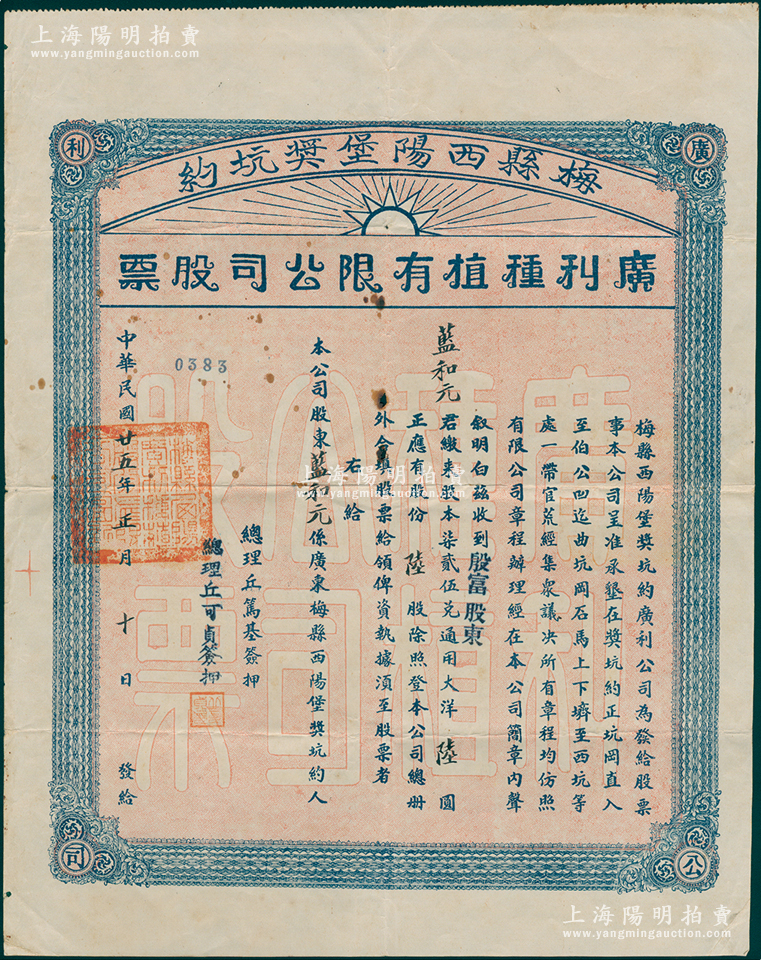 上海陽明拍賣
www.yangmingauction.com
上海陽明拍賣
www.yangmingauction.com
廣
利
公
司
梅縣西陽堡獎坑約
廣利種植有限公司股票
梅縣西陽堡獎坑約廣利公司為發給股票
事本公司呈准承墾在獎坑約正坑岡直入
至伯公凹迄曲坑岡石馬上下塆至西坑等
處一帶官荒經集衆議决所有章程均仿照
有限公司章程辦理經在本公司簡章內聲
敘明白茲收到殷富股東
藍和元 君繳來股本柒貳伍兌通用大洋 陸 圓
正應有股份 陸 股除照登本公司總册
外合填股票給領俾資執據須至股票者
右給
本公司股東藍和元係廣東梅縣西陽堡獎坑約人
總理丘篤基簽押
總理丘可貞簽押
0383
中華民國廿五年正月十日發給
上海陽明拍賣
www.yangmingauction.com
上海陽明拍賣
www.yangmingauction.com